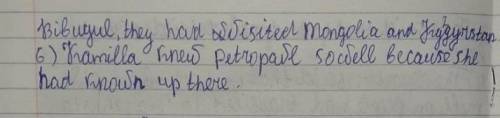 Bibugul, they had visited Mongolia and Kyrgyzstan
6) Kamilla knew petropavl so well because she
had known up there.